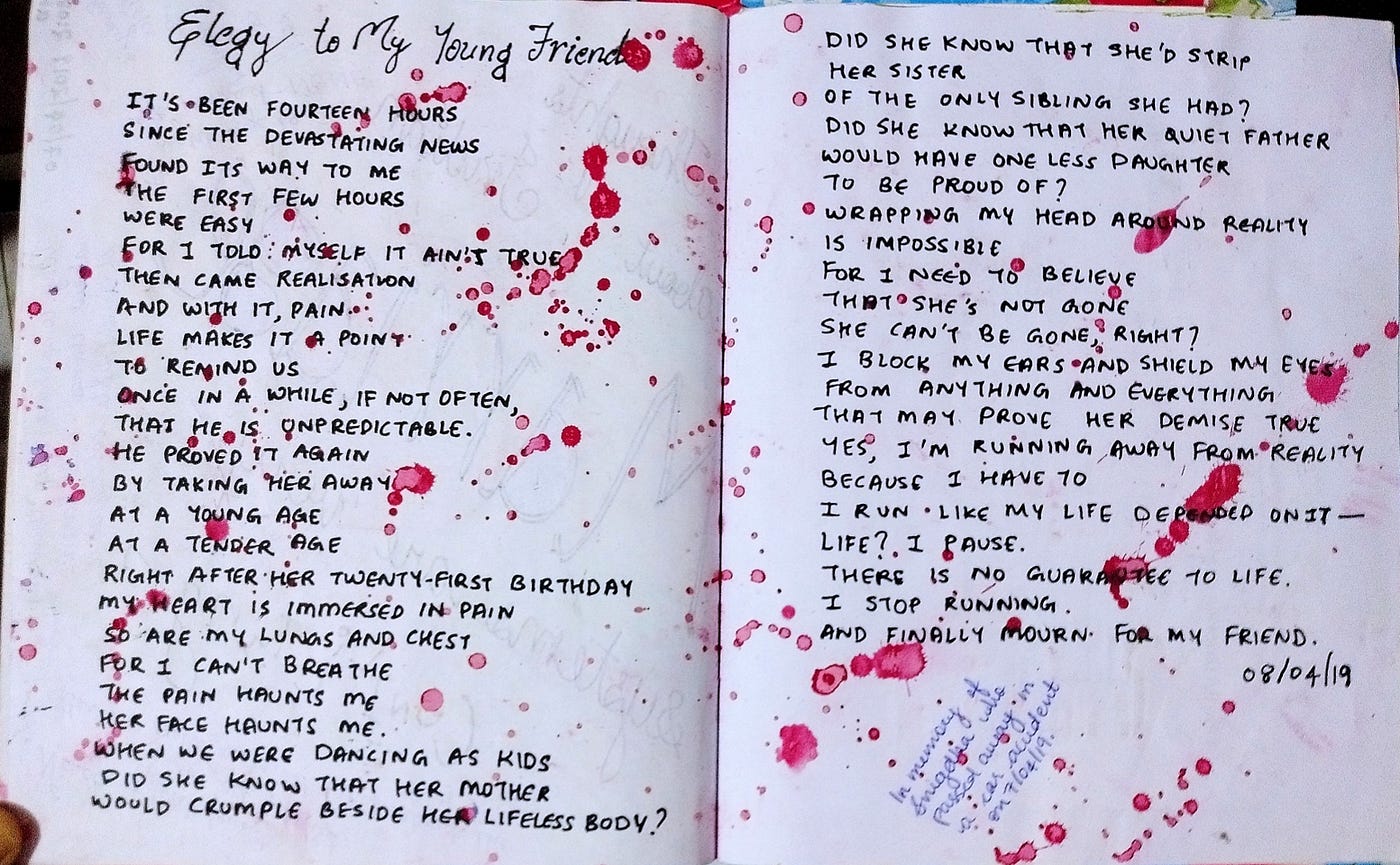 Elegy to My Young Friend
IT'S BEEN FOURTEEN HOURS
SINCE THE DEVASTATING NEWS
FOUND ITS WAY TO ME
THE FIRST FEW HOURS
WERE EASY
FOR I TOLD MYSELF IT AIN'T TRUE
THEN CAME REALISATION
AND WITH IT, PAIN.
LIFE MAKES IT A POINT
TO REMIND US
ONCE IN A WHILE, IF NOT OFTEN,
THAT HE IS UNPREDICTABLE.
HE PROVED IT AGAIN
BY TAKING HER AWAY
AT A YOUNG AGE
AT A TENDER AGE
RIGHT AFTER HER TWENTY-FIRST BIRTHDAY
MY HEART IS IMMERSED IN PAIN
SO ARE MY LUNGS AND CHEST
FOR I CAN'T BREATHE
THE PAIN HAUNTS ME
HER FACE HAUNTS ME.
WHEN WE WERE DANCING AS KIDS
DID SHE KNOW THAT HER MOTHER
WOULD CRUMPLE BESIDE HER LIFELESS BODY?
DID SHE KNOW THAT SHE'D STRIP
HER SISTER
OF THE ONLY SIBLING SHE HAD?
DID SHE KNOW THAT HER QUIET FATHER
WOULD HAVE ONE LESS DAUGHTER
TO BE PROUD OF?
WRAPPING MY HEAD AROUND REALITY
IS IMPOSSIBLE
FOR I NEED TO BELIEVE
THAT SHE'S NOT GONE
SHE CAN'T BE GONE, RIGHT?
I BLOCK MY EARS AND SHIELD MY EYES
FROM ANYTHING AND EVERYTHING
THAT MAY PROVE HER DEMISE TRUE
YES, I'M RUNNING AWAY FROM REALITY
BECAUSE I HAVE TO
I RUN LIKE MY LIFE DEPENDED ON IT —
LIFE? I PAUSE.
THERE IS NO GUARANTEE TO LIFE.
I STOP RUNNING.
AND FINALLY MOURN FOR MY FRIEND.
08/04/19
In memory of
Snigdha who
passed away in
a car accident
on 7/04/19.